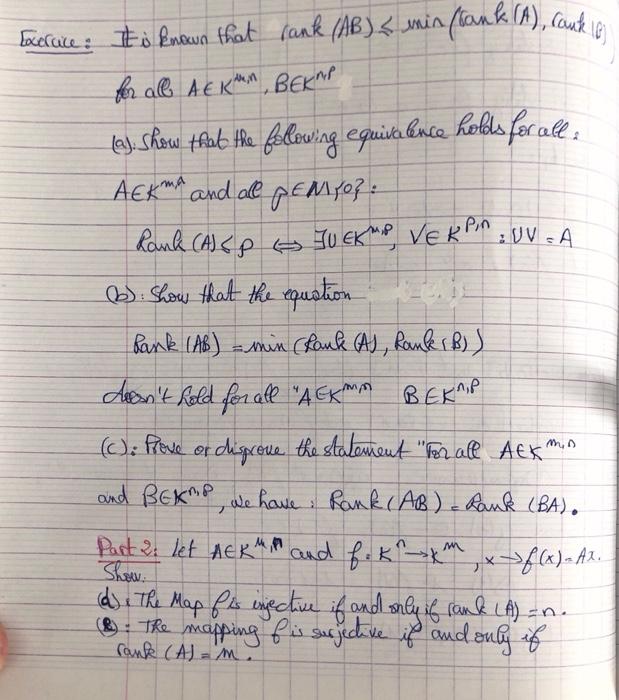 Exercice : It is known that rank (AB) ≤ min (rank (A), rank (B))
for all A ∈ K^{m,n}, B ∈ K^{n,p}
(a). Show that the following equivalence holds for all :
A ∈ K^{m,n} and all p ∈ N\{0} :
Rank (A) ≤ p ⇔ ∃ U ∈ K^{m,p}, V ∈ K^{p,n} : UV = A
(b) : Show that the equation
Rank (AB) = min (Rank (A), Rank (B))
doesn't hold for all "A ∈ K^{m,n} B ∈ K^{n,p}
(c) : Prove or disprove the statement "For all A ∈ K^{m,n}
and B ∈ K^{n,p}, we have : Rank (AB) = Rank (BA).
Part 2: let A ∈ K^{m,n} and f : K^n → K^m, x → f(x) = Ax.
Show.
(d) : The Map f is injective if and only if rank (A) = n.
(e) : The mapping f is surjective if and only if
rank (A) = m.